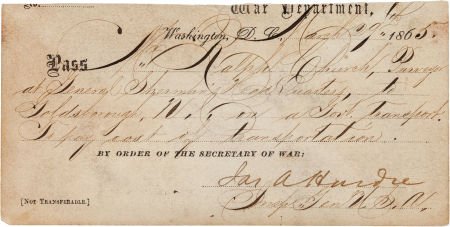 No.
War Department,
Washington, D. C. March 29th 1865.
Pass Mr Ralph Church,
at General Sherman's Head Quarters, to
Goldsborough, N. C. on a Govt. transport.
To pay cost of transportation.
BY ORDER OF THE SECRETARY OF WAR:
Jas A Hardie
[NOT TRANSFERABLE.] Insp. Gen U.S.A.